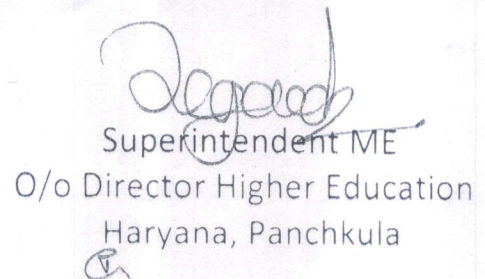 Superintendent ME
O/o Director Higher Education
Haryana, Panchkula